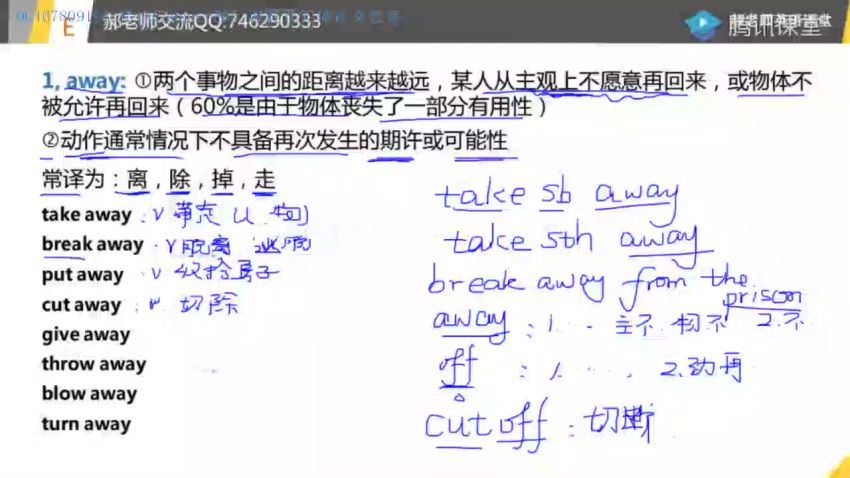 E 郝老师交流QQ:746290333
腾讯课堂
1, away: ①两个事物之间的距离越来越远，某人从主观上不愿意再回来，或物体不
被允许再回来（60%是由于物体丧失了一部分有用性）
②动作通常情况下不具备再次发生的期许或可能性
常译为：离，除，掉，走
take away : v 带走 (人 物)
break away : v 脱离 逃脱
put away : v 收拾房子
cut away : v 切除
give away
throw away
blow away
turn away
take sb away
take sth away
break away from the
prison
away : 1. … 主不 物不 2.不
off : 1. …. 2.动再
cut off : 切断